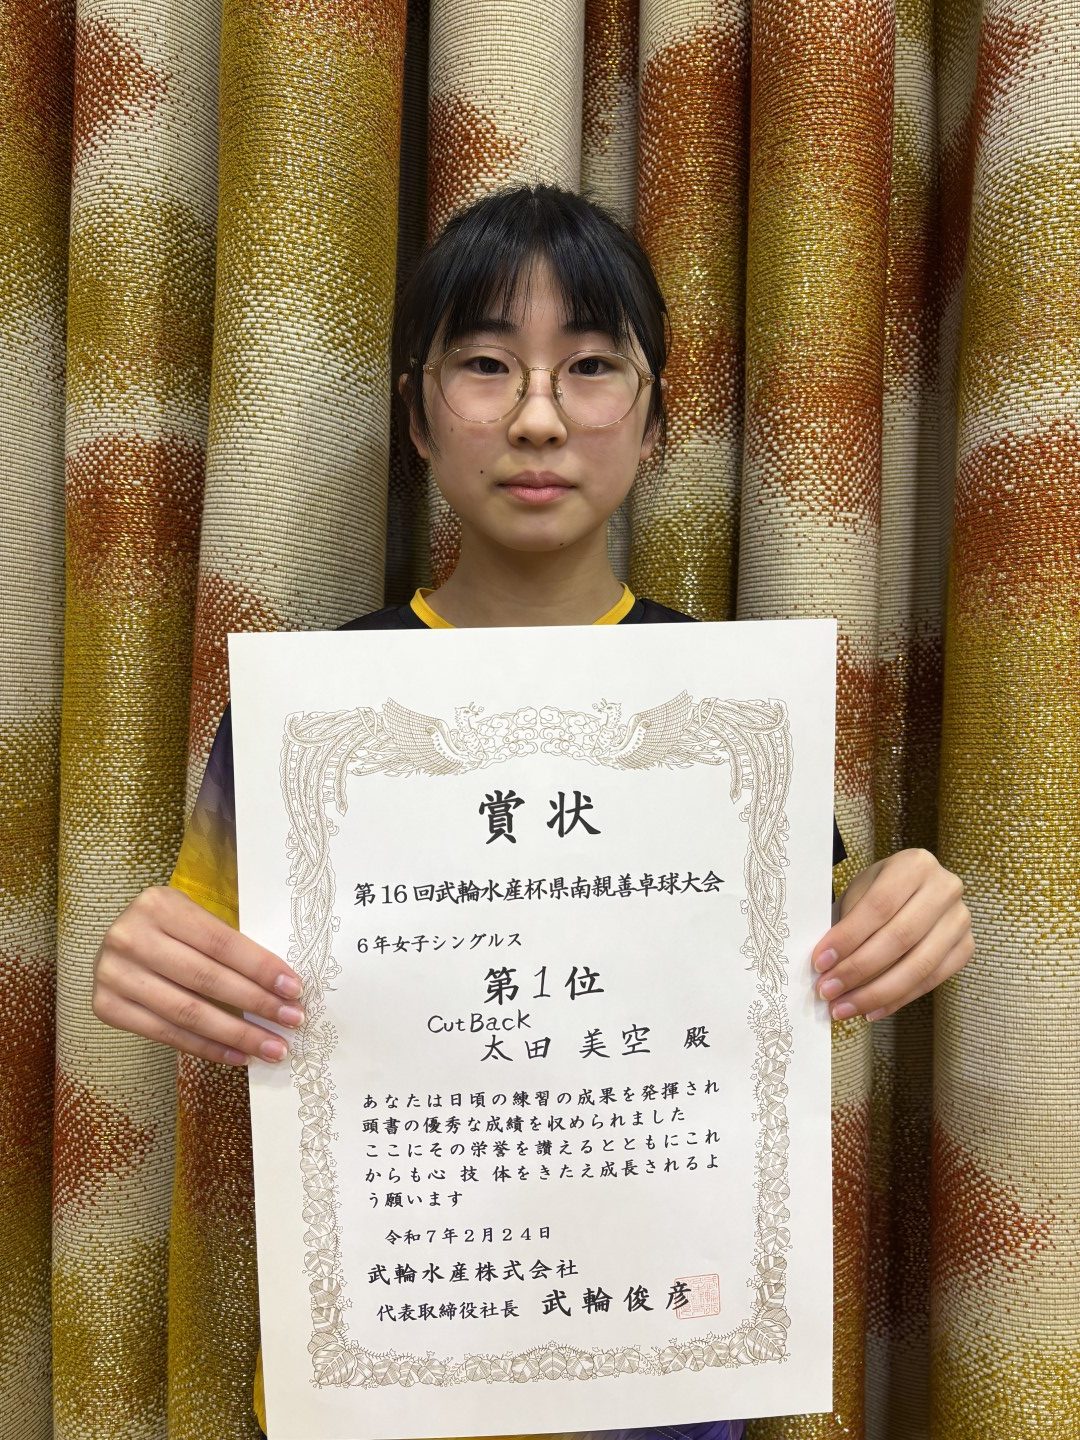 賞状
第16回武輪水産杯県南親善卓球大会
6年女子シングルス
第1位
CutBack
太田 美空 殿
あなたは日頃の練習の成果を発揮され
頭書の優秀な成績を収められました
ここにその栄誉を讃えるとともにこれ
からも心 技 体をきたえ成長されるよ
う願います
令和7年2月24日
武輪水産株式会社
代表取締役社長 武輪俊彦